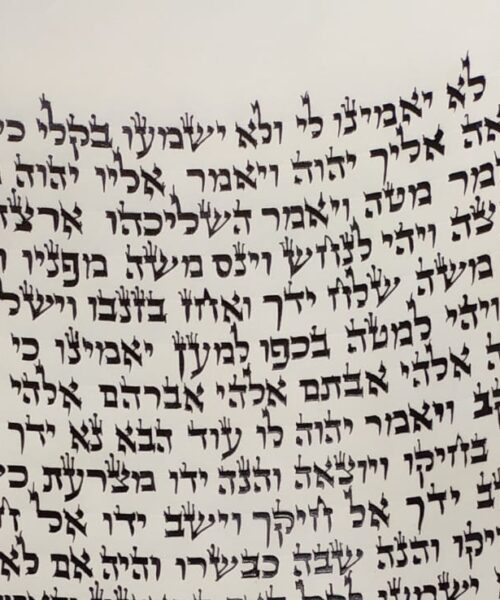 לא יאמינו לי ולא ישמעו בקלי כי
אה אליך יהוה ויאמר אליו יהוה
מר מטה ויאמר השליכהו ארצה
צה ויהי לנחש וינס משה מפניו ו
משה שלח ידך ואחז בזנבו וישל
ויהי למטה בכפו למען יאמינו כי
ה אלהי אבתם אלהי אברהם אלהי
קב ויאמר יהוה לו עוד הבא נא ידך
בחיקו ויוצאה והנה ידו מצרעת כש
ב ידך אל חיקך וישב ידו אל ח
יקו והנה שבה כבשרו והיה אם לא
ישמעו לקל